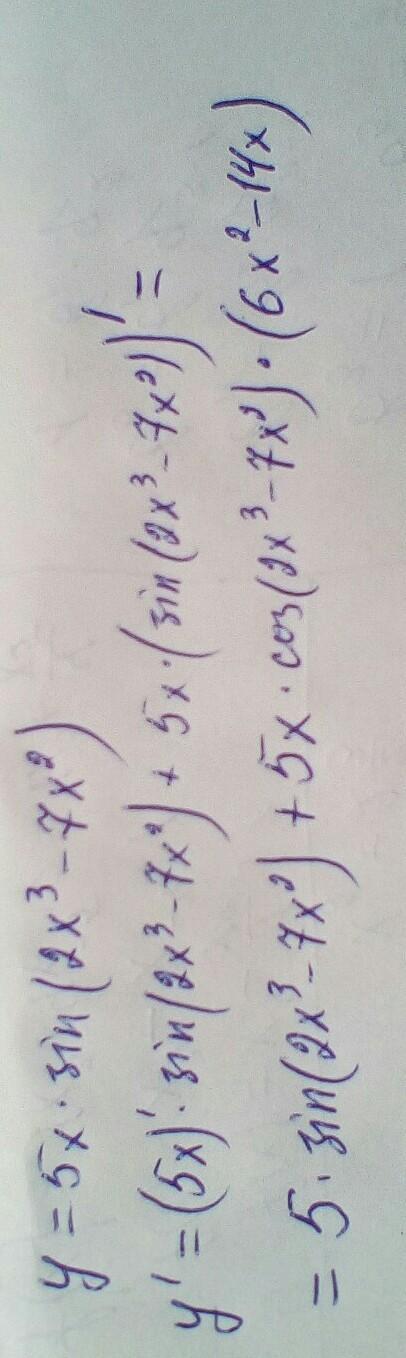 y = 5x · sin(2x³ - 7x²)
y' = (5x)' · sin(2x³ - 7x²) + 5x · (sin(2x³ - 7x²))' =
= 5 · sin(2x³ - 7x²) + 5x · cos(2x³ - 7x²) · (6x² - 14x)